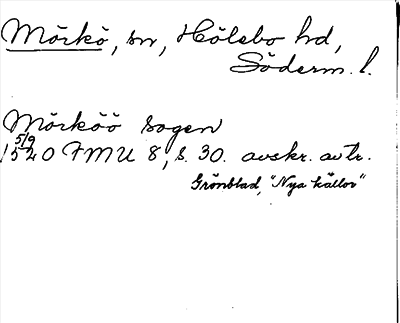 Mörkö, sn, Hölebo hd,
Söderm. l.
Mörköö sogen
5/9
1520 FMU 8, s. 30. avskr. av tr.
Grönblad, "Nya källor"